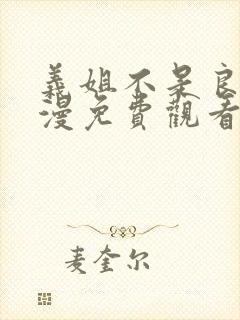 義姐不呆良
漫免費觀看
麦奎尔